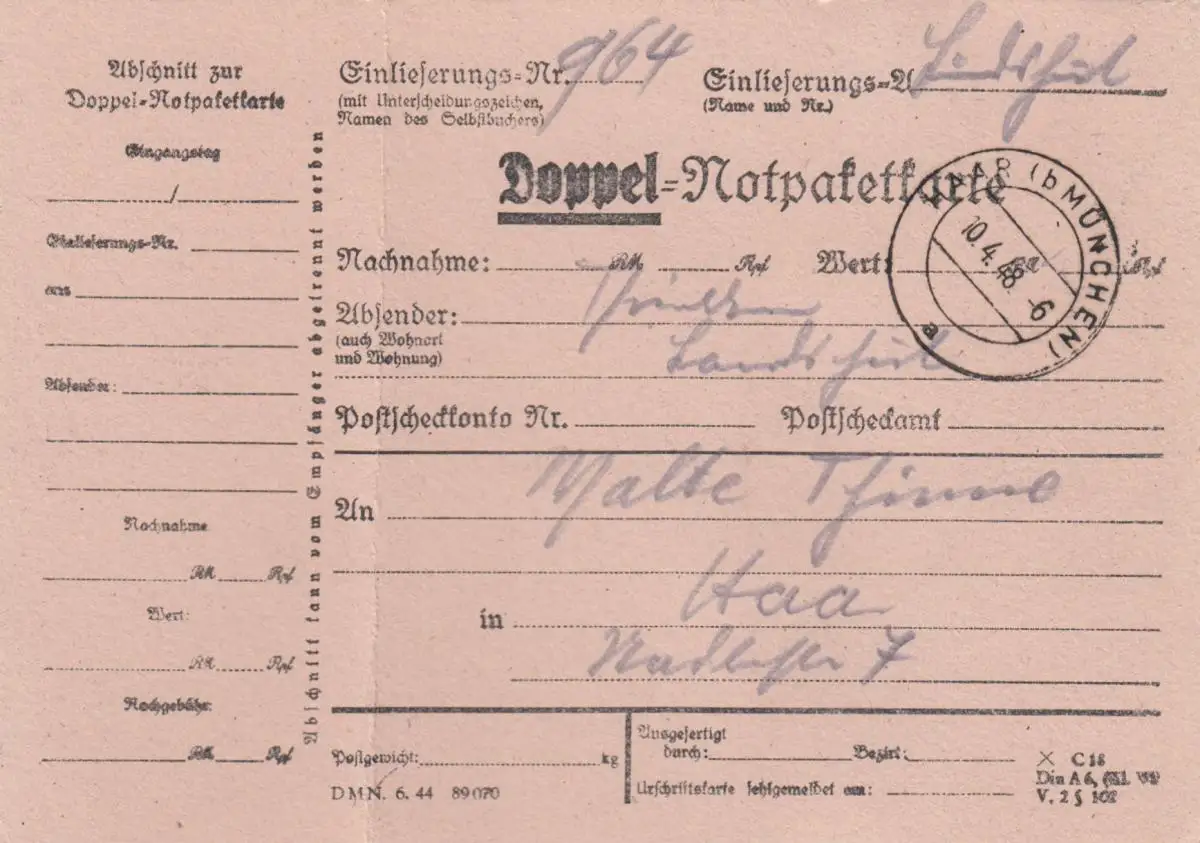 Abschnitt zur
Doppel-Notpaketkarte
Eingangstag
/
Einlieferungs-Nr.
aus
Absender:
Nachnahme
RM Rpf
Wert:
RM Rpf
Nachgebühr:
RM Rpf
Abschnitt kann vom Empfänger abgetrennt werden
Einlieferungs-Nr. 964
(mit Unterscheidungszeichen,
Namen des Selbstbuchers)
Einlieferungs-A Landshut
(Name und Nr.)
Doppel-Notpaketkarte
HAAR (b MÜNCHEN)
10.4.48.-6
a
Nachnahme: RM Rpf Wert: RM Rpf
Absender:
(auch Wohnort
und Wohnung) Landshut
Postscheckkonto Nr. Postscheckamt
An Malte Thieme
in Haa
7
Postgewicht: kg
Ausgefertigt
durch: Bezirk:
Urschriftskarte fehlgemeldet am:
DMN. 6. 44 89070
× C 18
Din A 6, (Kl.
V. 2 § 102